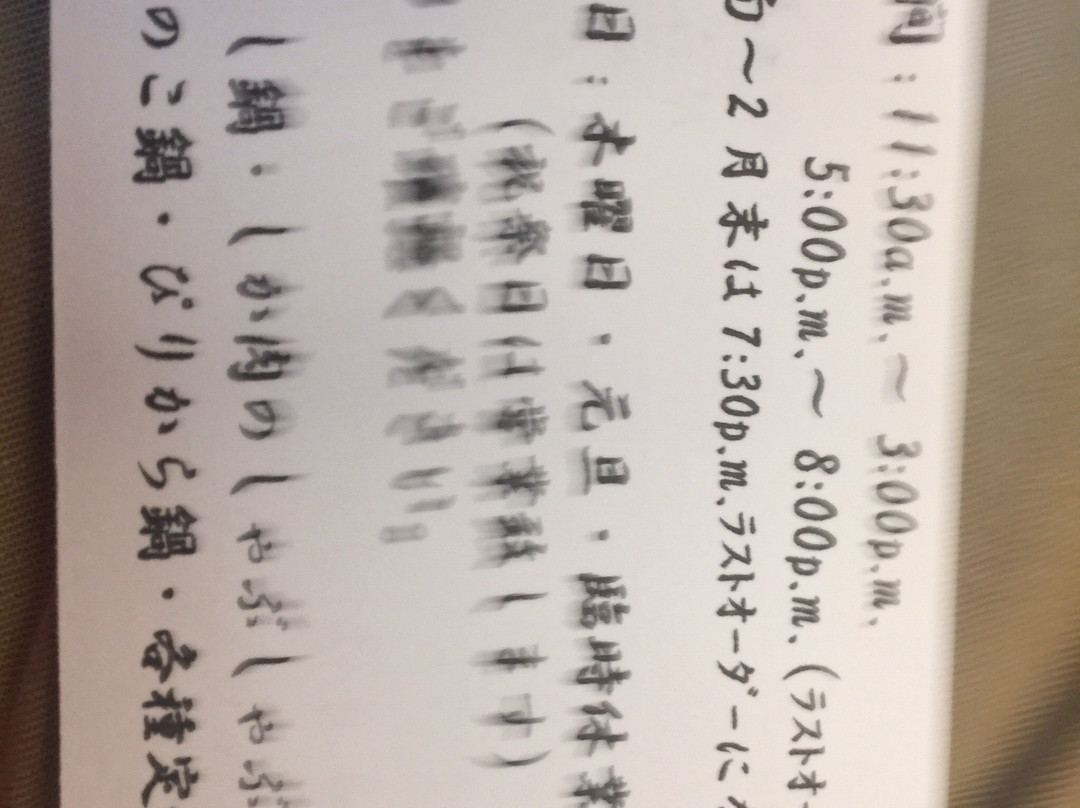 間：11:30a.m.～3:00p.m.
5:00p.m.～8:00p.m.(ラストオー
旬～2月末は7:30p.m.ラストオーダーに
日：水曜日・元旦・臨時休業
(祝祭日は営業致します)
ください。
し鍋・しか肉のしゃぶしゃぶ
のこ鍋・ぴりから鍋・各種定